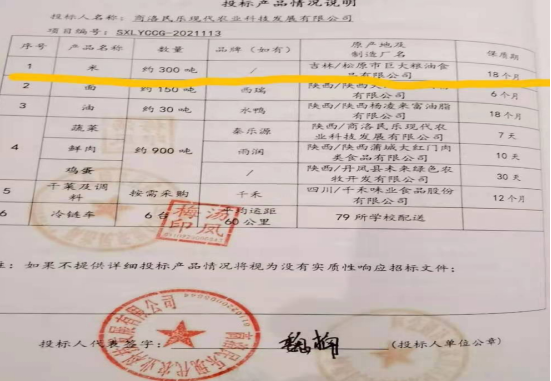 投标产品情况说明
投标人名称：商洛民乐现代农业科技发展有限公司
项目编号：SXLYCCG-2021113
序号 产品名称 数量 品牌（如有） 原产地及制造厂名 保质期
1 米 约300吨 / 吉林/松原市巨大粮油食品有限公司 18个月
2 面 约150吨 西瑞 陕西/陕西 有限公司 6个月
3 油 约30吨 水鸭 陕西/陕西杨凌来富油脂有限公司 18个月
4 蔬菜 约900吨 秦乐源 陕西/商洛民乐现代农业科技发展有限公司 7天
鲜肉 尚润 陕西/陕西蒲城大红门肉类食品有限公司 10天
鸡蛋 / 陕西/丹凤县未来绿色农牧开发有限公司 30天
5 干菜及调料 按需采购 千禾 四川/千禾味业食品股份有限公司 12个月
6 冷链车 6台 平均运距60公里 79所学校配送
注：如果不提供详细投标产品情况将视为没有实质性响应招标文件；
投标人代表签字： （投标人单位公章）